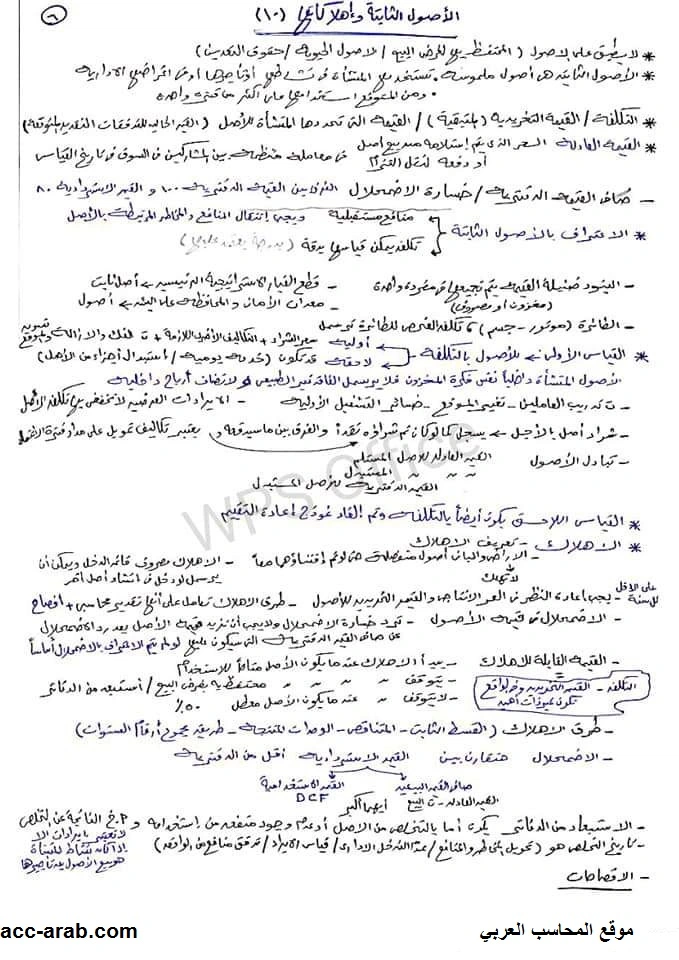 ٦
الأصول الثابتة وإهلاكاتها (١٠)
* لا يطبق على الأصول (المحتفظ بها لغرض البيع / الأصول الحيوية / حقوق التعدين)
* الأصول الثابتة هي أصول ملموسة تستخدمها المنشأة في نشاطها أو تأجيرها أو في أغراضها الادارية
ومن المتوقع استخدامها على أكثر من فترة واحدة
* التكلفة / القيمة التخريدية (المتبقية) / القيمة التي تحددها المنشأة للأصل (القيم الحالية للتدفقات النقدية المتوقعة)
* القيمة العادلة السعر الذي يتم استلامه عند بيع أصل
أو دفعه لنقل التزام
في معاملة منتظمة بين المشاركين في السوق في تاريخ القياس
- صافي القيمة الدفترية / خسارة الاضمحلال الفرق بين القيمة الدفترية ١٠٠ والقيم الاستردادية ٨٠
* الاعتراف بالأصول الثابتة
منافع مستقبلية ويجب إنتقال المنافع والمخاطر المرتبطة بالأصل
تكلفه يمكن قياسها بدقة (بدرجة يعتمد عليها)
- البنود ضئيلة القيمة يتم تجميعها في مفردة واحدة
(مخزون أو مصروف)
- قطع الغيار الاستراتيجية الرئيسية ← أصل ثابت
- معدات الأمان والمحافظة على البيئة ← أصول
- الطائرة (موتور - جسم) تكلفة الفحص للطائرة
* القياس الأولي للأصول بالتكلفة
أولية سعر الشراء + التكاليف الأخرى اللازمة + ت الفك والإزالة وتسوية الموقع
لاحقة قد تكون (خدمة يومية / استبدال أجزاء من الأصل)
الأصول المنشأة داخلياً نفس فكرة المخزون فلا يرسمل الفاقد غير الطبيعي ولا تضاف أرباح داخلية
- ت تدريب العاملين - تغيير الموقع - خسائر التشغيل الأولية
- الايرادات العرضية لا تخفض بها تكلفة الأصل
- شراء أصل بالأجل ← يسجل كما لو كان تم شراؤه نقداً والفرق بين ما سيدفعه و يعتبر تكاليف تمويل على مدار فترة الائتمان
- تبادل الأصول
القيمة العادلة للأصل المستلم
" " " المستبدل
القيمة الدفترية للأصل المستبدل
* القياس اللاحق يكون أيضاً بالتكلفة وتم إلغاء نموذج إعادة التقييم
* الاهلاك - تعريف الاهلاك
- الأراضي والمباني أصول منفصلة حتى لو تم إقتناؤها معاً
لا تهلك
- الاهلاك مصروف قائمة الدخل ويمكن أن
يرسمل لو دخل في انشاء أصل آخر
على الأقل
كل سنة
- يجب إعادة النظر في العمر الانتاجي والقيمة التخريدية للأصول - طرق الاهلاك تعامل على أنها تقدير محاسبي + افصاح
- الاضمحلال في قيمة الأصول - ترد خسارة الاضمحلال ولا يجب أن تزيد قيمة الأصل بعد رد الاضمحلال
عن صافي القيمة الدفترية التي سيكون عليها لو لم يتم الاعتراف بالاضمحلال أساساً
- القيمة القابلة للاهلاك
التكلفة - القيمة التخريدية وفي الواقع
تكون غير ذات أهمية
- يبدأ الاهلاك عندما يكون الأصل متاحاً للاستخدام
- يتوقف " " " " محتفظ به بغرض البيع / أستبعد من الدفاتر
- لا يتوقف " عندما يكون الأصل معطل ٥٠٪
- طرق الاهلاك (القسط الثابت - المتناقص - الوحدات المنتجة - طريقة مجموع أرقام السنوات)
- الاضمحلال هنقارن بين القيمة الاستردادية أقل من الدفترية
صافي القيمة البيعية
القيمة العادلة - ت البيع
القيمة الاستخدامية
DCF
أيهما أكبر
- الاستبعاد من الدفاتر يكون أما بالتخلص من الأصل أو عدم وجود منفعة من إستخدامه و
الناتجة عن التخلص
لا تعتبر إيرادات إلا
إذا كان نشاط المنشأة
هو بيع الأصول بعد تأجيرها
- تاريخ التخلص هو (تحويل المخاطر والمنافع / عدم التدخل الاداري / قياس الايراد / تدفق منافع من الواقعة)
- الافصاحات
WPS Office
acc-arab.com
موقع المحاسب العربي